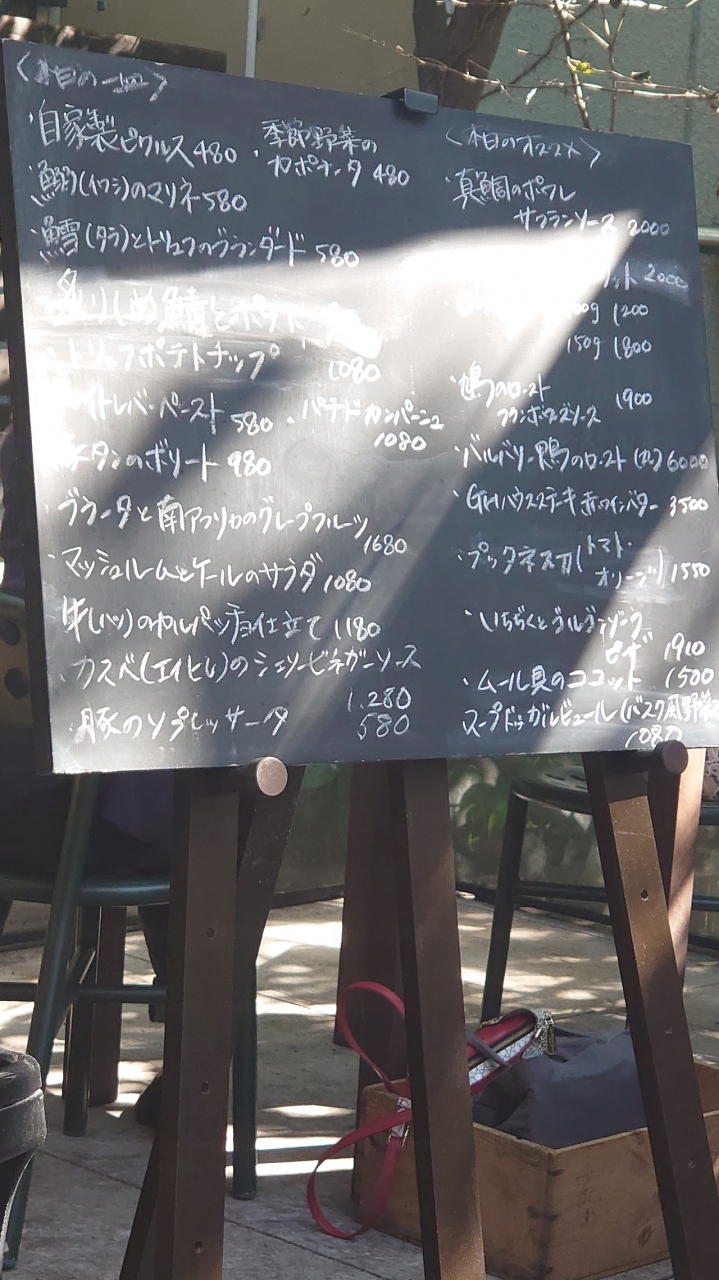 〈本日の一皿〉
・自家製ピクルス 480
・季節野菜の
カポナータ 480
・鰯(イワシ)のマリネ 580
・鱈(タラ)とトリュフのブランダード 580
炙りしめ鯖とポテト
・トリュフポテトチップ 1080
レバーペースト 580
・パテドカンパーニュ
1080
タンのボリート 980
・ブラータと南アフリカのグレープフルーツ
1680
・マッシュルームとケールのサラダ 1080
・牛(ハツ)のカルパッチョ仕立て 1180
・カスベ(エイヒレ)のシェリービネガーソース
1.280
・豚のソプレッサータ 580
〈本日のオススメ〉
・真鯛のポワレ
サフランソース 2000
ット 2000
1200
150g 1800
・鳩のロースト
フランボワーズソース 1900
・バルバリー鴨のロースト 6000
・GHハウスステーキ赤ワインバター 3500
・プッタネスカ(トマト・
オリーブ) 1550
・いちぢくとゴルゴンゾーラ
ピザ 1910
・ムール貝のココット 1500
スープドガルビュール(バスク風野菜
1080